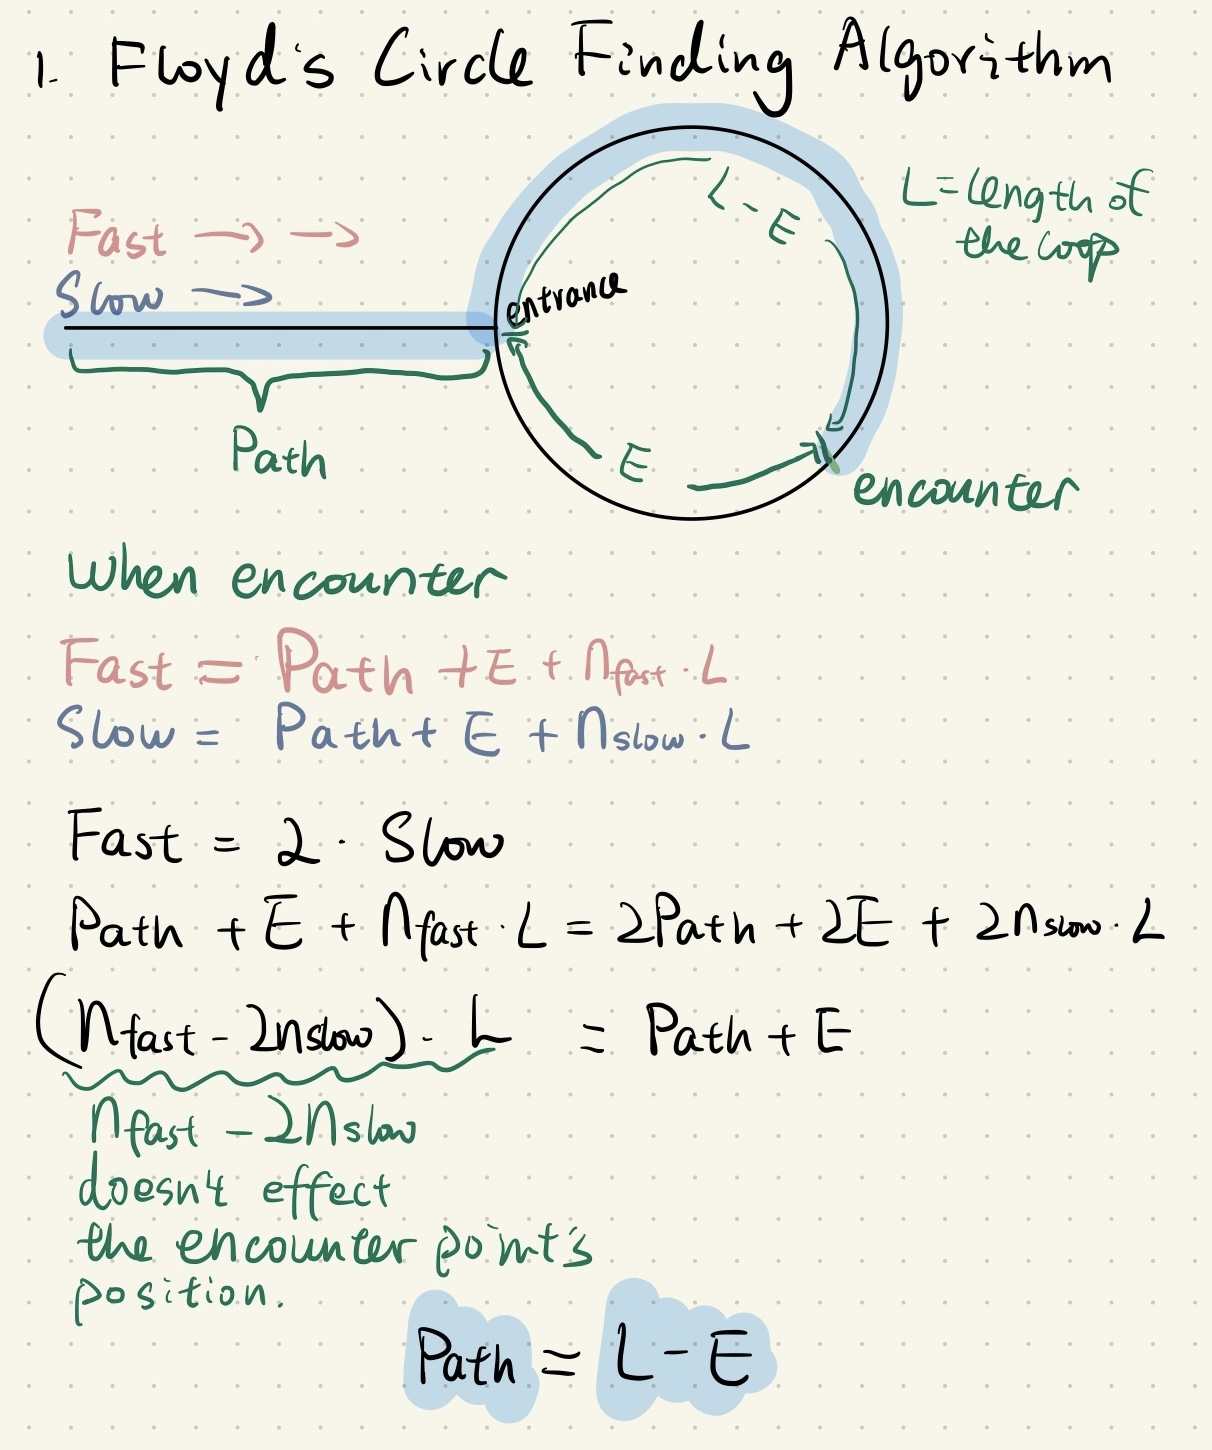 1. Floyd's Circle Finding Algorithm
L-E
L=length of
the loop
Fast → →
Slow →
entrance
Path
E
encounter
When encounter
Fast = Path + E + nfast · L
Slow = Path + E + nslow · L
Fast = 2 · Slow
Path + E + nfast · L = 2Path + 2E + 2nslow · L
(nfast - 2nslow) · L = Path + E
nfast - 2nslow
doesn't effect
the encounter point's
position.
Path = L - E